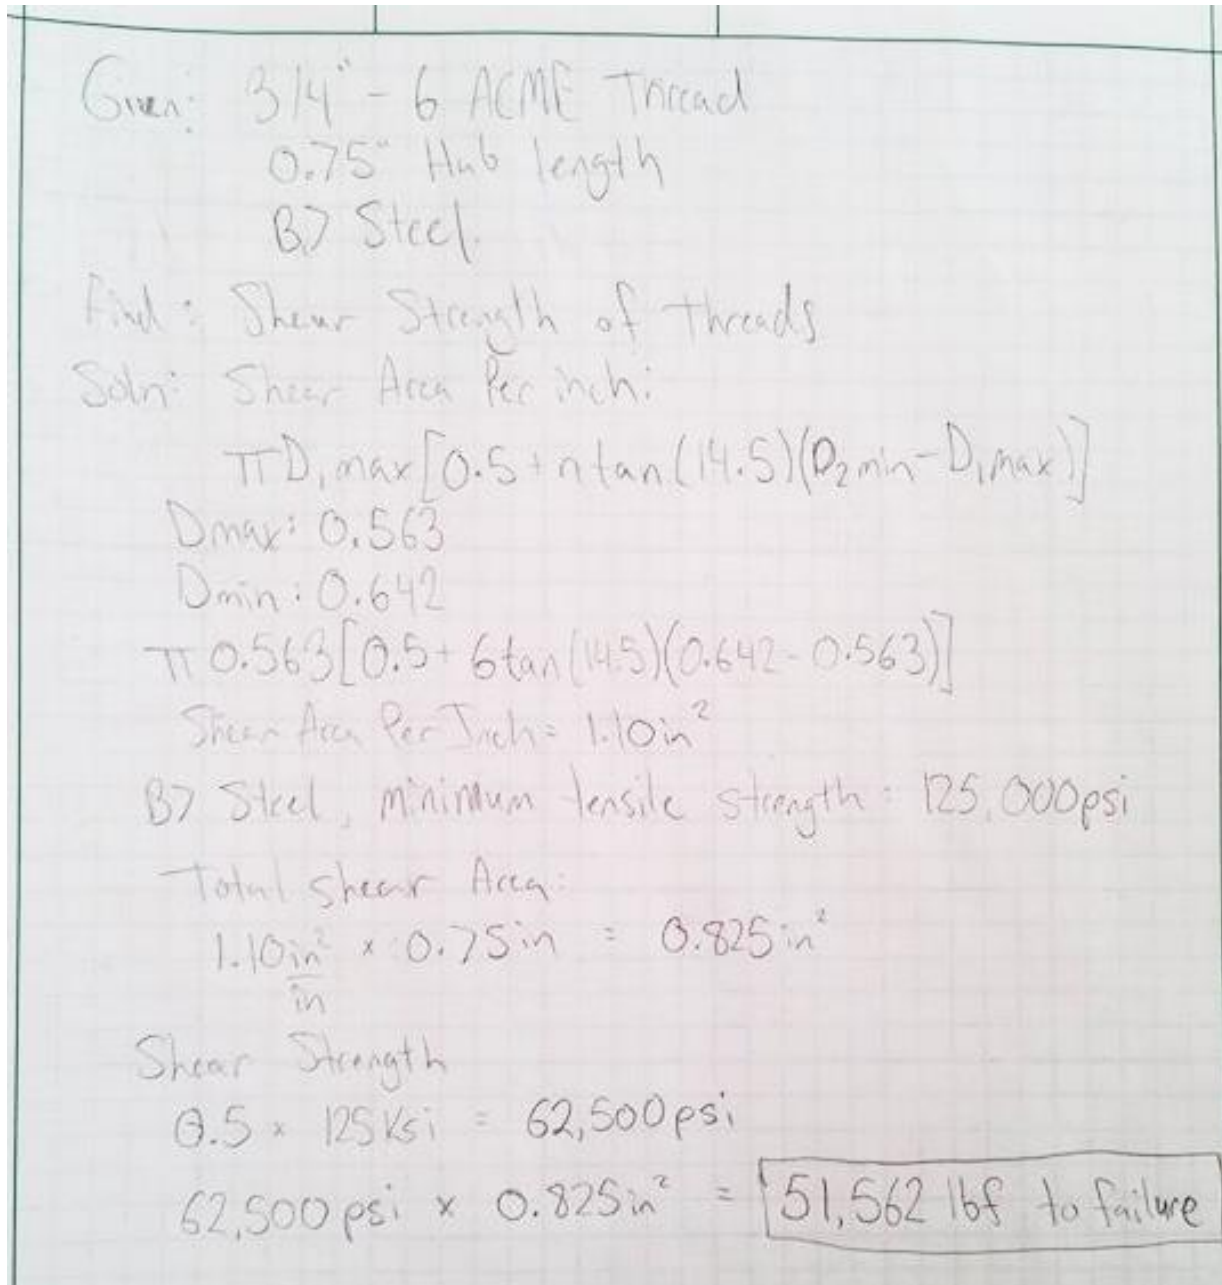 Given: 3/4" - 6 ACME Thread
0.75" Hub length
B7 Steel.
Find: Shear Strength of threads
Soln: Shear Area Per inch:
πD₁max[0.5+ntan(14.5)(D₂min-D₁max)]
Dmax: 0.563
Dmin: 0.642
π0.563[0.5+6tan(14.5)(0.642-0.563)]
Shear Area Per Inch = 1.10in²
B7 Steel, minimum tensile strength = 125,000psi
Total shear Area:
1.10 in²/in × 0.75in = 0.825in²
Shear Strength
0.5 × 125Ksi = 62,500psi
62,500psi × 0.825in² = 51,562 lbf to failure